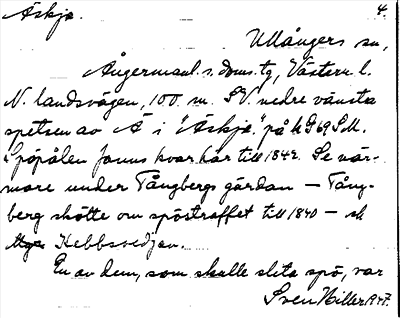 Äskja. 4.
Ullångers sn,
Ångermanl. s. doms. tg, Västern. l.
N. landsvägen, 100 m. SV. nedre vänstra
spetsen av Ä i "Äskja" på k G69 SM.
Spöpålen fanns kvar här till 1842. Se när-
mare under Tångbergsgärdan — Tång-
berg skötte om spöstraffet till 1840 — och
Hebbsvedjan.
En av dem, som skulle slita spö, var
Sven Hiller 1947.